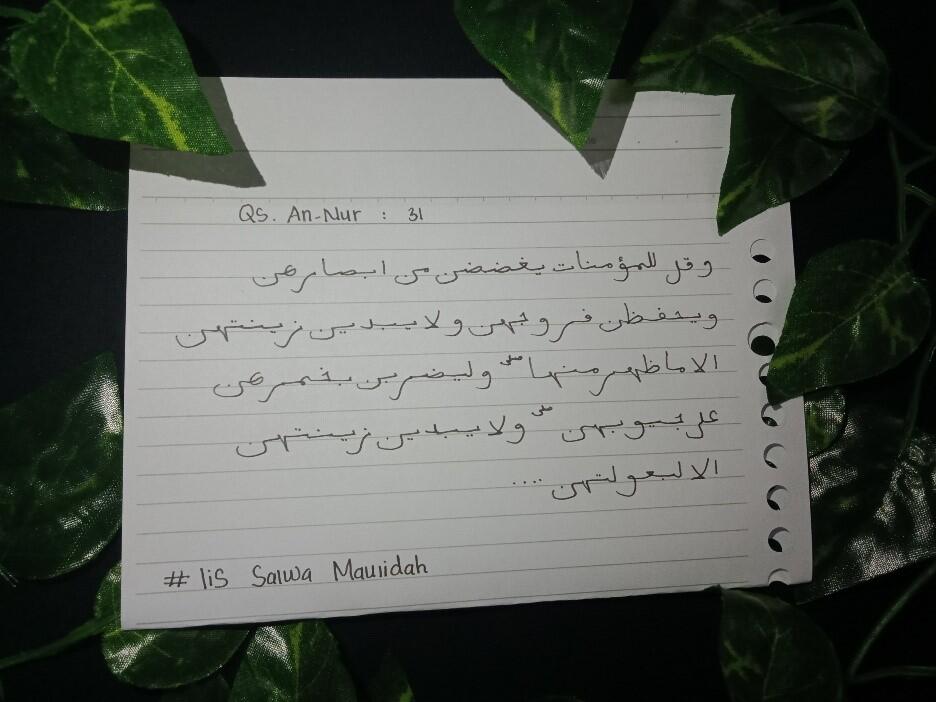 QS. An-Nur : 31
وقل للمؤمنات يغضضن من ابصارهن
ويحفظن فروجهن ولا يبدين زينتهن
الا ما ظهر منها ۖ وليضربن بخمرهن
على جيوبهن ۖ ولا يبدين زينتهن
الا لبعولتهن ....
# lis Salwa Maulidah